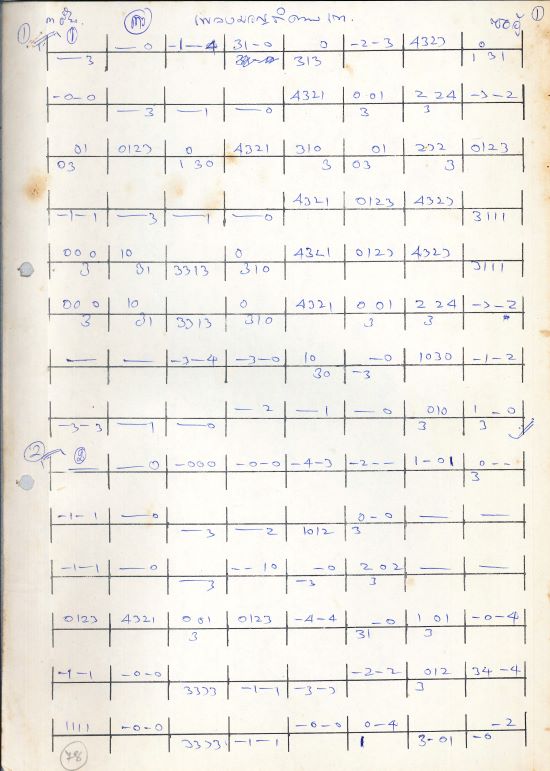 ① ๓ ชั้น. เพลงมอญรำดาบ เถา. ซออู้ ①
① — 0 -1-4 31-0 0 -2-3 4323 0
— 3 313 1 31
-0-0 4321 0 01 2 24 -3-2
— 3 — 1 — 0 3 3
01 0123 0 4321 310 01 232 0123
03 1 30 3 03 3
4321 0123 4323
-1-1 — 3 — 1 — 0 3111
00 0 10 0 4321 0123 4323
3 31 3313 310 3111
00 0 10 0 4321 0 01 2 24 -3-2
3 31 3313 310 3 3
— — -3-4 -3-0 10 -0 1030 -1-2
30 -3
— 2 — 1 — 0 010 1 -0
-3-3 — 1 — 0 3 3
② ② — — 0 -000 -0-0 -4-3 -2-- 1-01 0--
3
-1-1 — 0 0-0 — —
— 3 — 2 1012 3
-1-1 — 0 --10 -0 202 — —
— 3 -3 3
0123 4321 001 0123 -4-4 -0 1 01 -0-4
3 31 3
-1-1 -0-0 -2-2 012 34-4
3333 -1-1 -3-3 3
1111 -0-0 -0-0 0-4 -2
3333 -1-1 1 3-01 -0
78